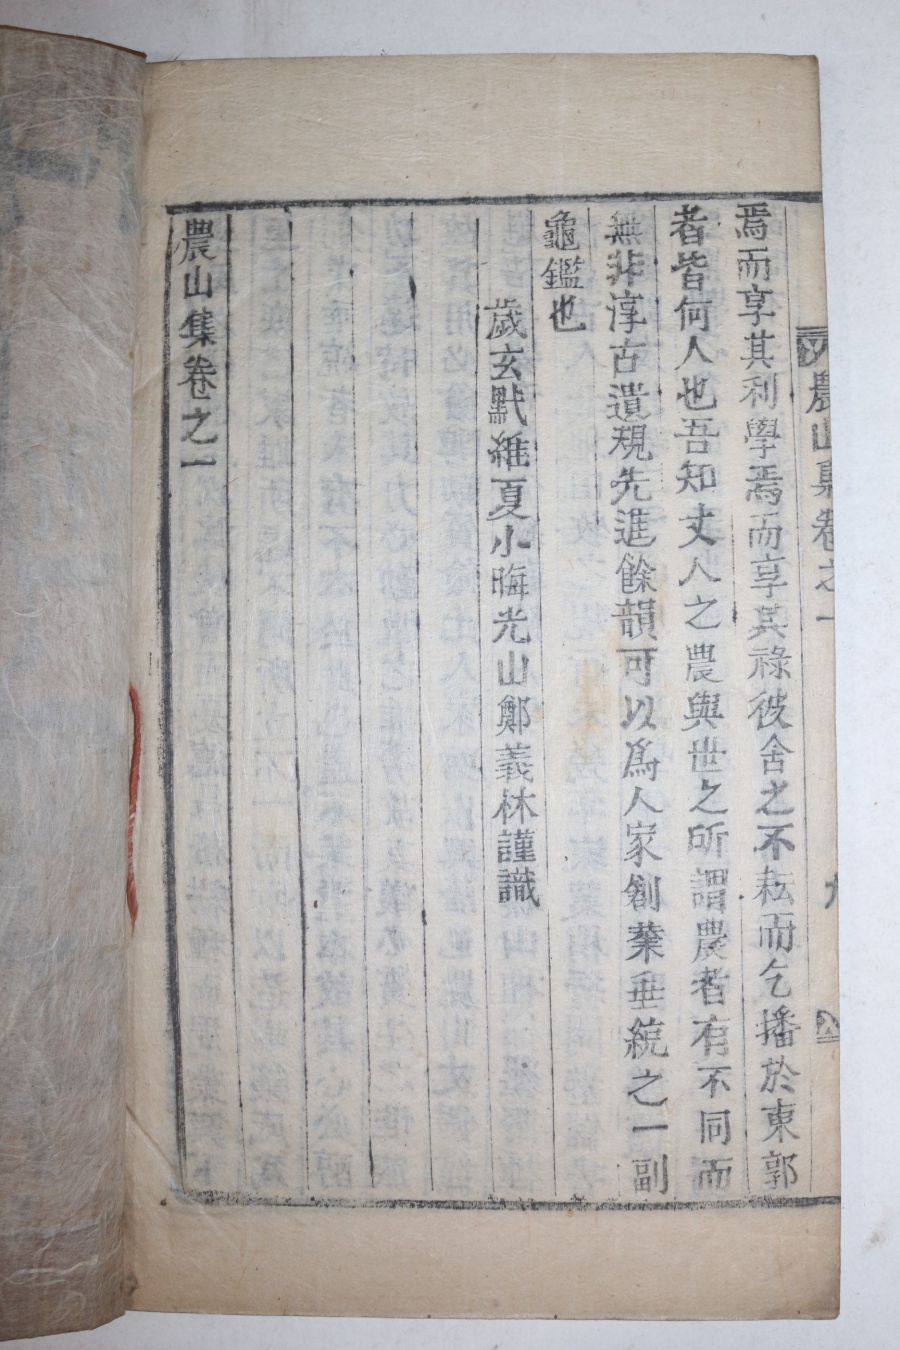 農山集卷之一
九
焉而享其利學焉而享其祿彼舍之不耘而乞播於東郭
者皆何人也吾知丈人之農與世之所謂農者有不同而
無非淳古遺規先進餘韻可以爲人家創業垂統之一副
龜鑑也
歲玄黓維夏小晦光山鄭義林謹識
農山集卷之一